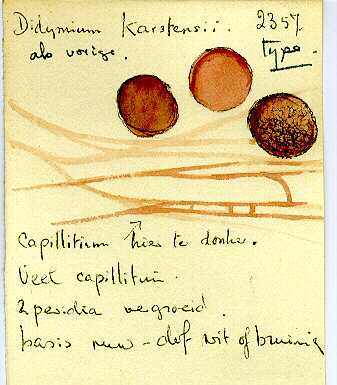 Didymium Karstensii. 2357
als vorige. type.
Capillitium hier te donker.
Veel capillitium.
2 peridia vergroeid.
basis ruw - def wit of bruinig